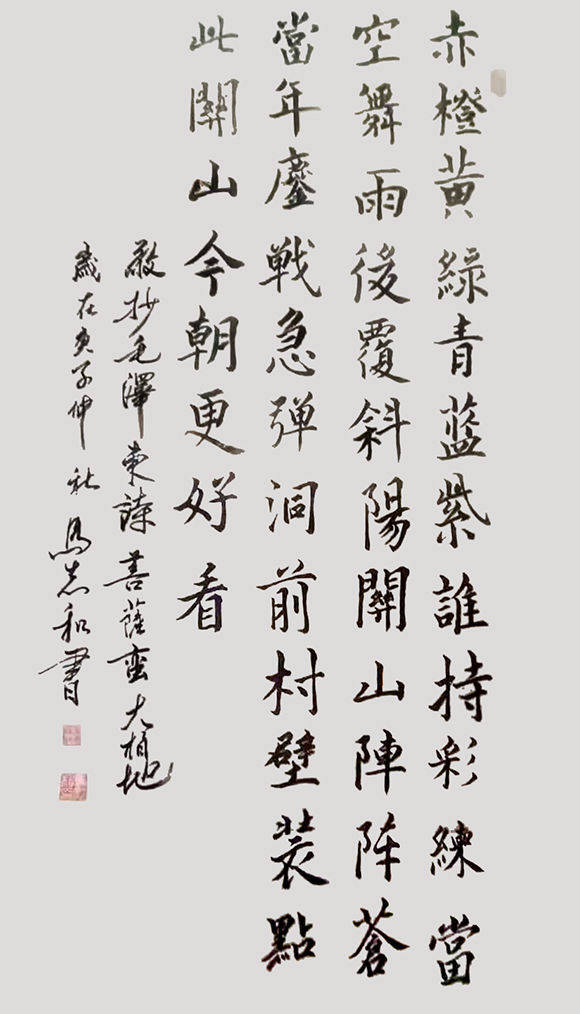 赤橙黄綠青蓝紫誰持彩練當
空舞雨後覆斜陽關山陣阵蒼
當年鏖戦急弹洞前村壁装點
此關山今朝更好看
敬抄毛澤東詩菩薩蛮大柏地
歲在庚子仲秋 馬志和書